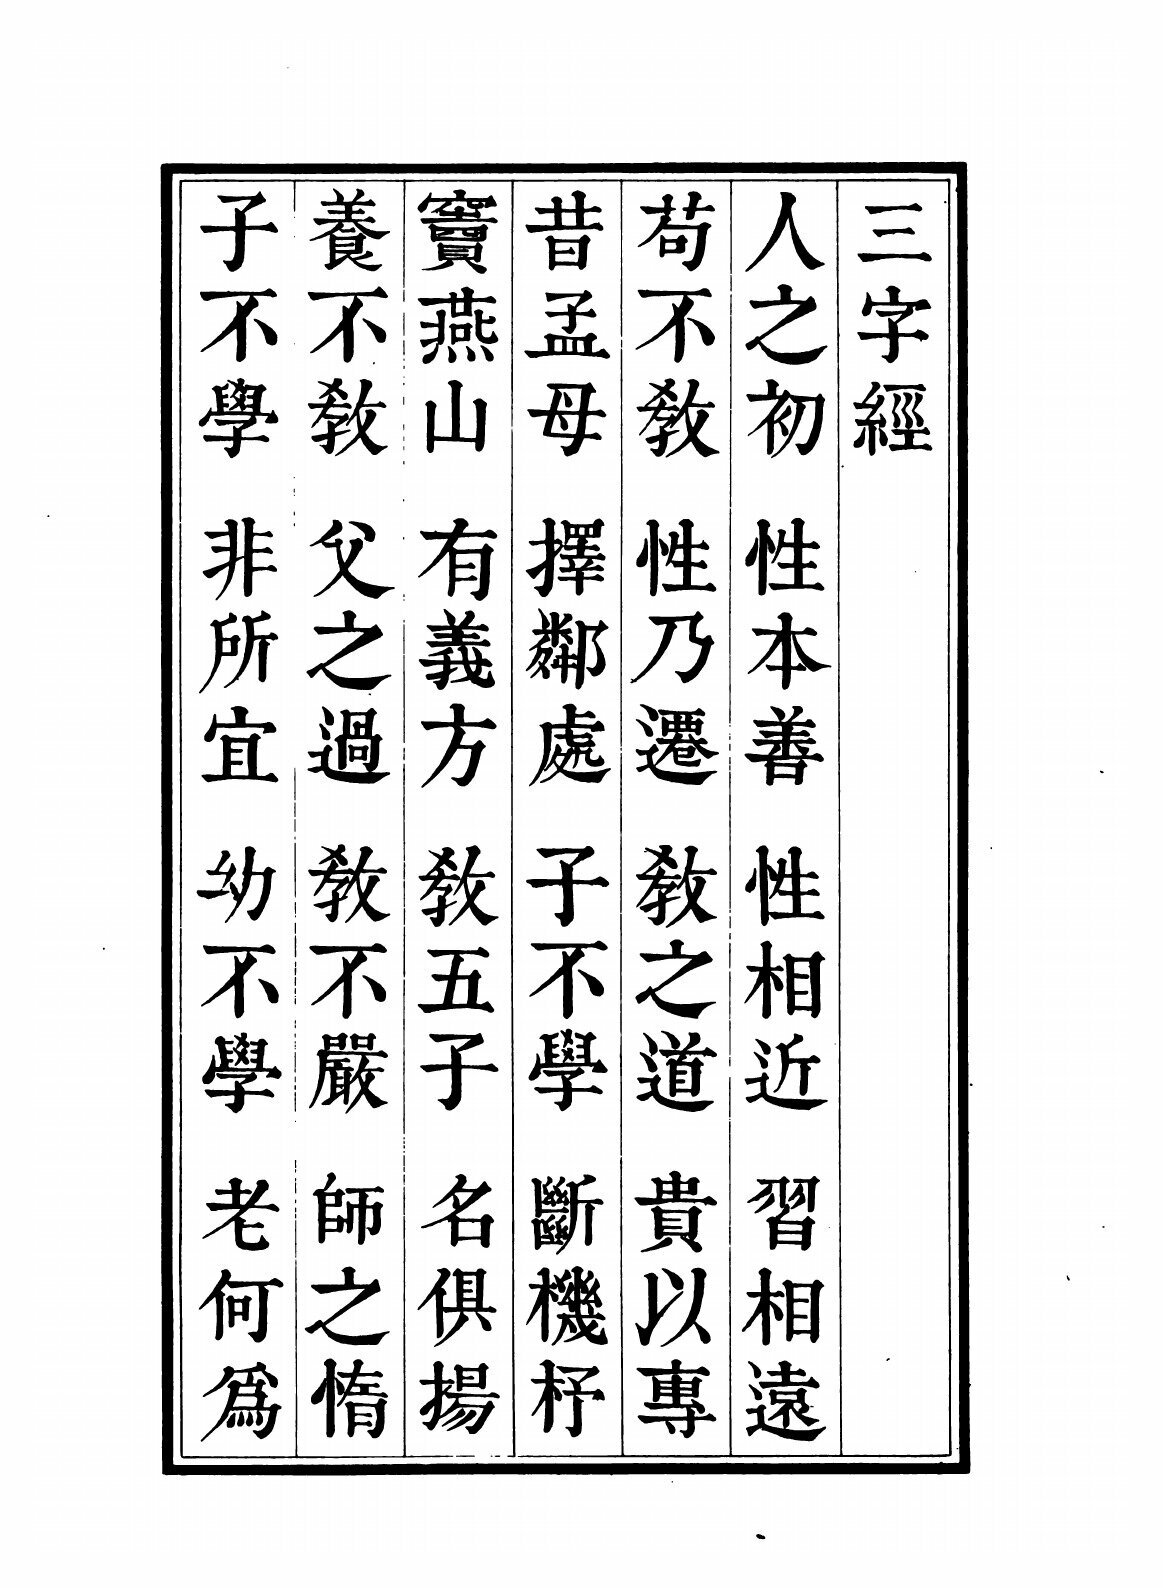 三字經
人之初 性本善 性相近 習相遠
苟不敎 性乃遷 敎之道 貴以專
昔孟母 擇鄰處 子不學 斷機杼
竇燕山 有義方 敎五子 名俱揚
養不敎 父之過 敎不嚴 師之惰
子不學 非所宜 幼不學 老何爲